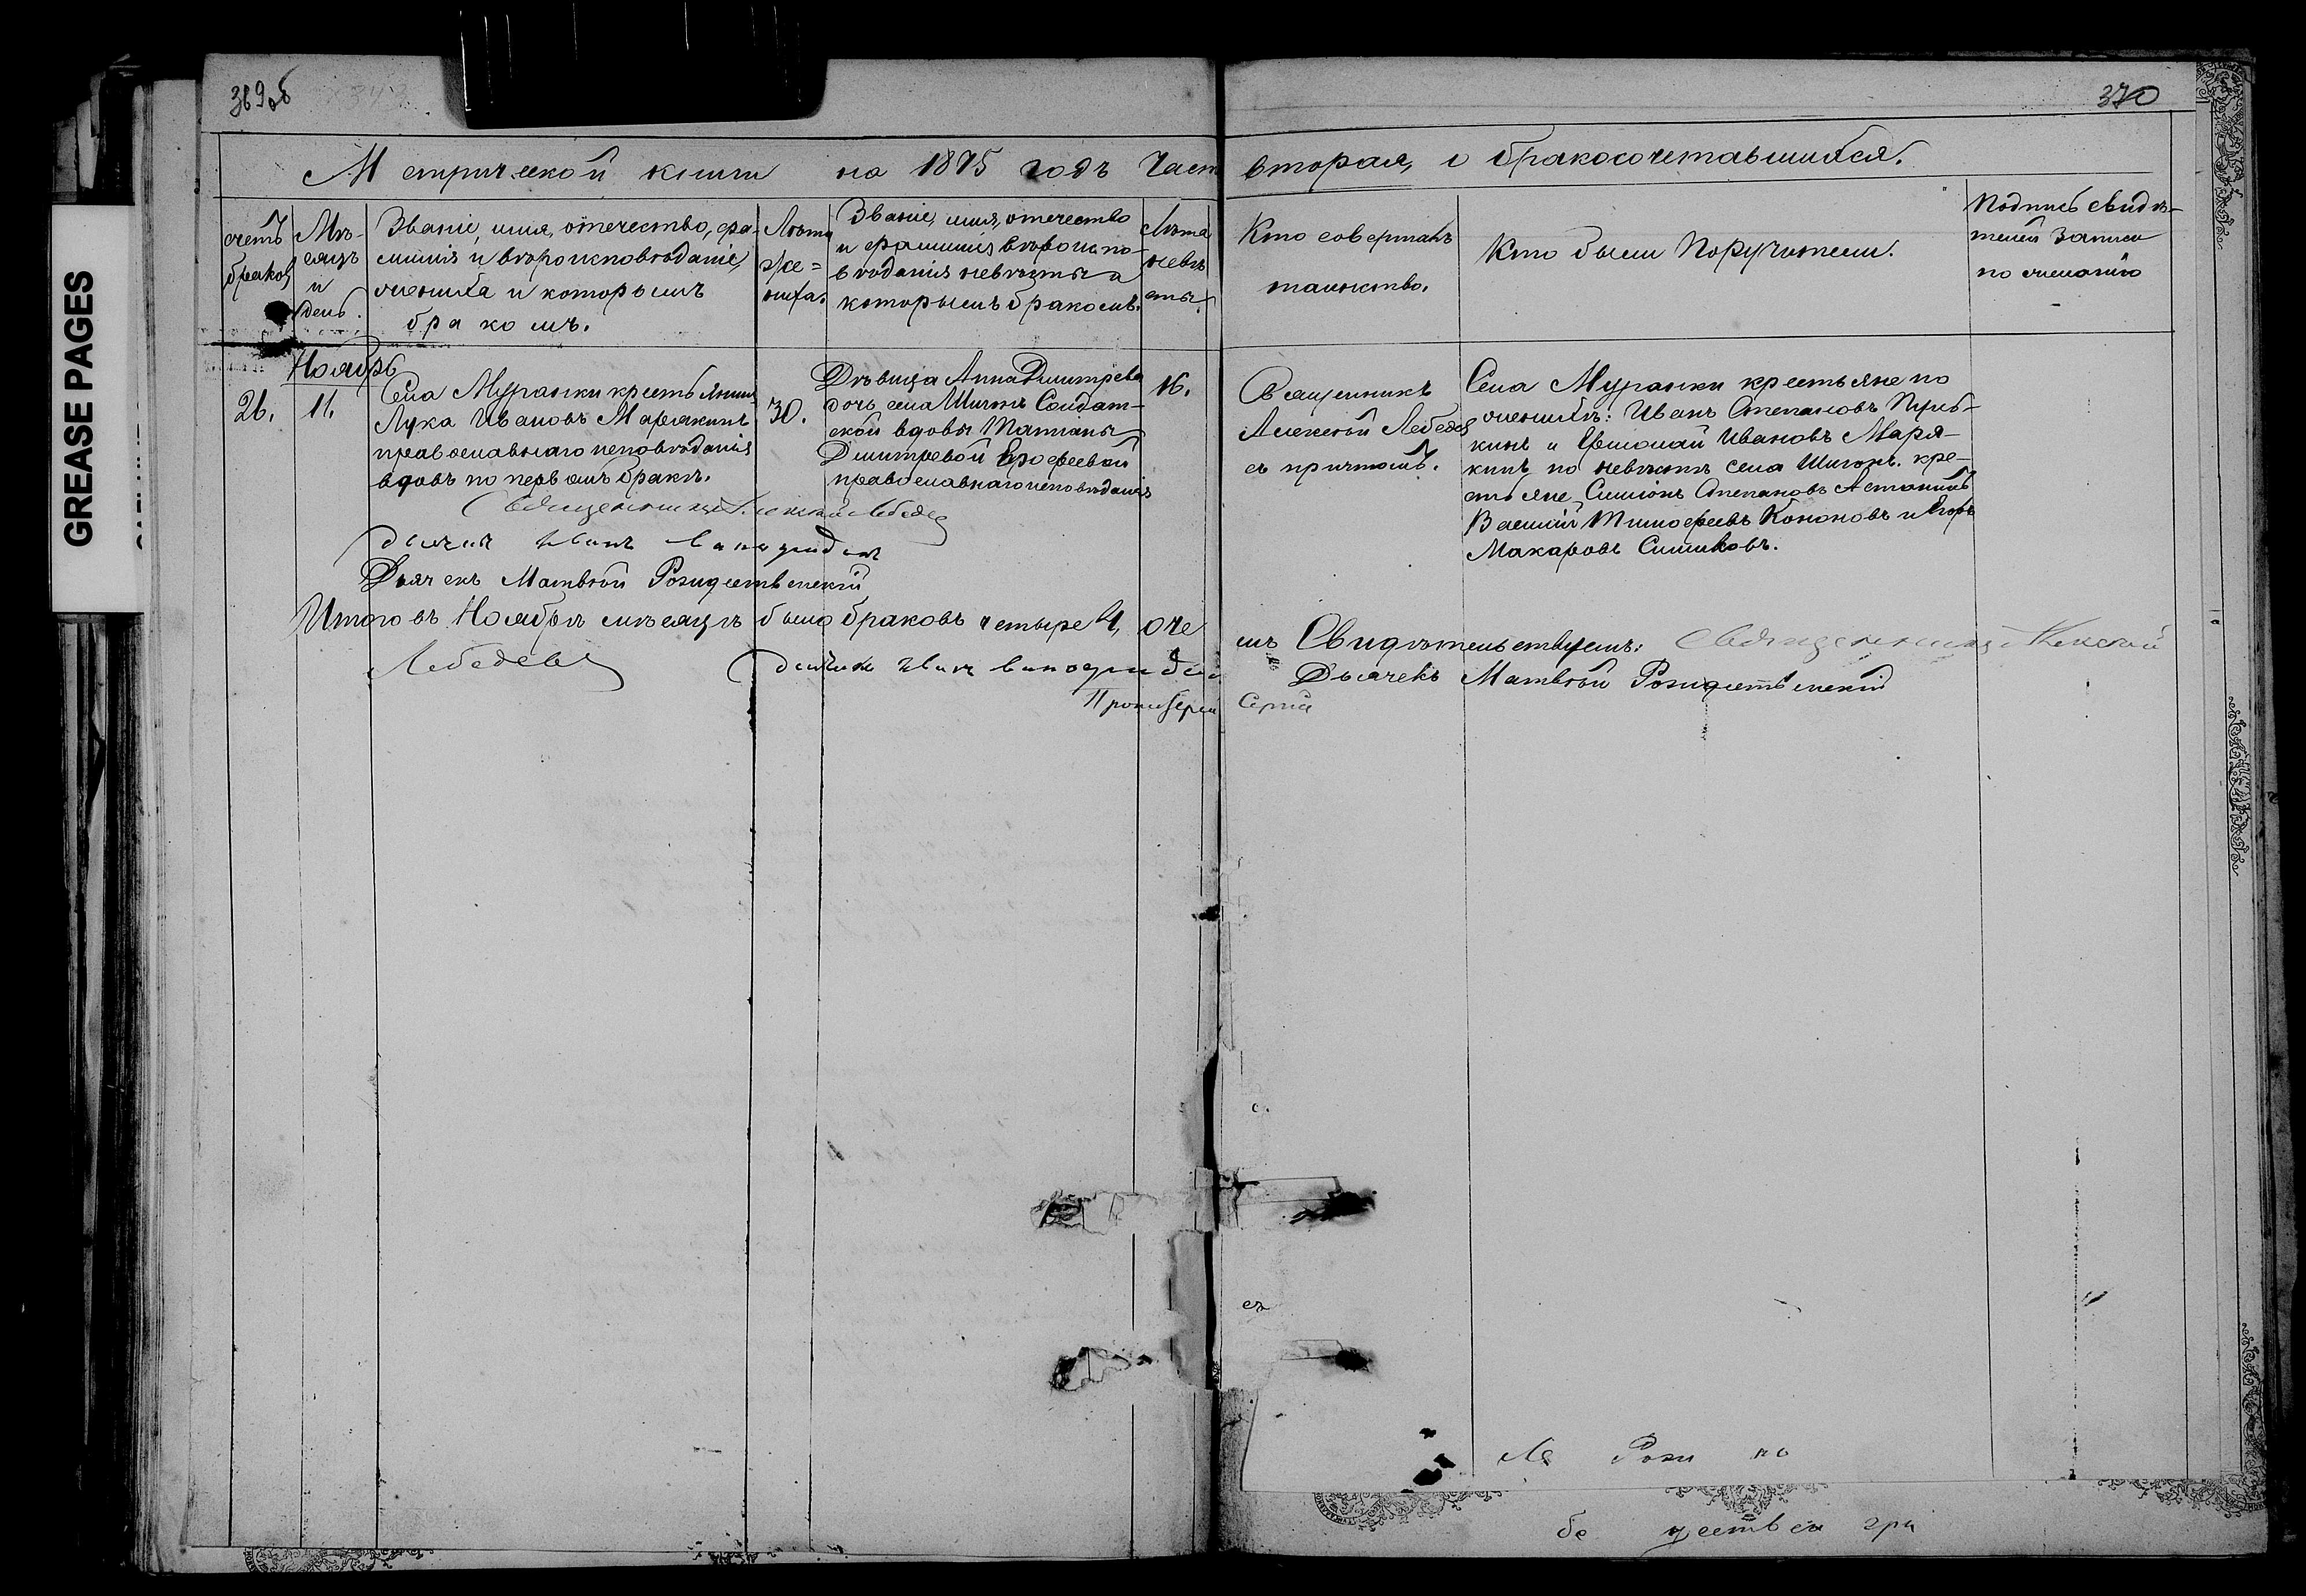 GREASE PAGES
369об
370
Метрической книги на 1875 годъ Част вторая, о бракосочетавшихся.
счетъ браков
Мѣ-
сяцъ
и
день.
Званіе, имя, отечество, фа-
милія и вѣроисповѣданіе,
жениха и которымъ
бракомъ.
Лѣта
же=
ниха.
Званіе, имя, отечество
и фамилія вѣроиспо-
вѣданія невѣсты и
которымъ бракомъ.
Лѣта
невѣ
сты.
Кто совершалъ
таинство.
Кто были Поручители.
Подпись свидѣ-
телей записи
по желанію
Ноябрь
26.
11.
Села Муранки крестьянинъ
Лука Ивановъ Марякинъ
православнаго исповѣданія
вдовъ по первомъ бракѣ.
30.
Дѣвица Анна Дмитрева
дочь села Шигонъ Солдат-
ской вдовы Татіаны
Дмитревой Ерофеевой
православнаго исповѣданія
16.
Священникъ
Алексѣй Лебедев
съ причтомъ.
Села Муранки крестьяне по
женихѣ: Иванъ Степановъ
кинъ и Ермолай Ивановъ Маря-
кинъ по невѣстѣ села Шигонъ. кре-
стьяне Симіонъ Степановъ
Василій Тимофеевъ Кононовъ и Егоръ
Макаровъ Симиковъ.
Священникъ Алексѣй Лебедев
Дьячекъ Матвѣй Рождественскій
Итого въ Ноябрѣ мѣсяцѣ было браковъ четыре 4, о че
мъ Свидѣтельствуемъ: Священникъ Алексей
Лебедевъ
Дьячекъ Матвѣй Рождественскій